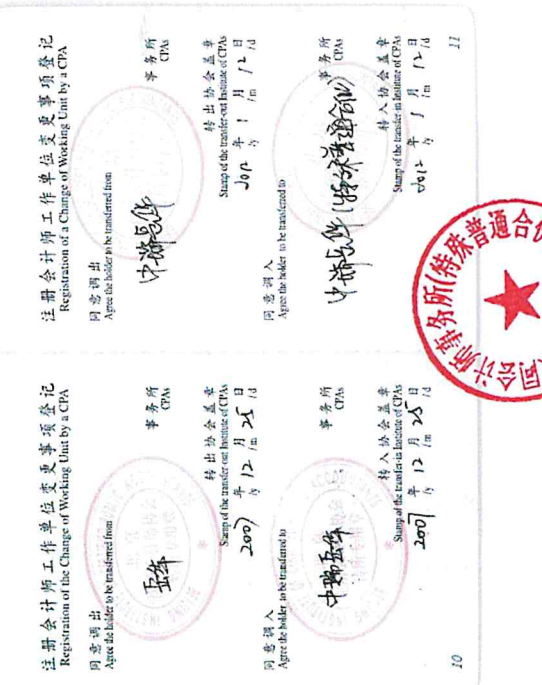 注册会计师工作单位变更事项登记
Registration of the Change of Working Unit by a CPA
同意调出
Agree the holder to be transferred from
岳华
事务所
CPAs
转出协会盖章
Stamp of the transfer-out Institute of CPAs
2007 年 12 月 25 日
/y /m /d
同意调入
Agree the holder to be transferred to
中瑞岳华
事务所
CPAs
转入协会盖章
Stamp of the transfer-in Institute of CPAs
2007 年 12 月 25 日
/y /m /d
10
注册会计师工作单位变更事项登记
Registration of a Change of Working Unit by a CPA
同意调出
Agree the holder to be transferred from
中瑞岳华
事务所
CPAs
转出协会盖章
Stamp of the transfer-out Institute of CPAs
2012 年 1 月 12 日
/y /m /d
同意调入
Agree the holder to be transferred to
中瑞岳华(特殊普通合伙)
事务所
CPAs
转入协会盖章
Stamp of the transfer-in Institute of CPAs
2012 年 1 月 12 日
/y /m /d
11
同会计师事务所(特殊普通合伙